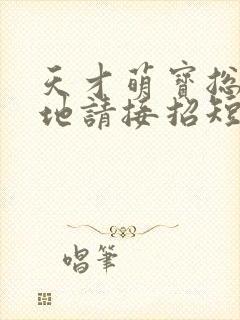 天才萌寳總
地請接招短
唱筆